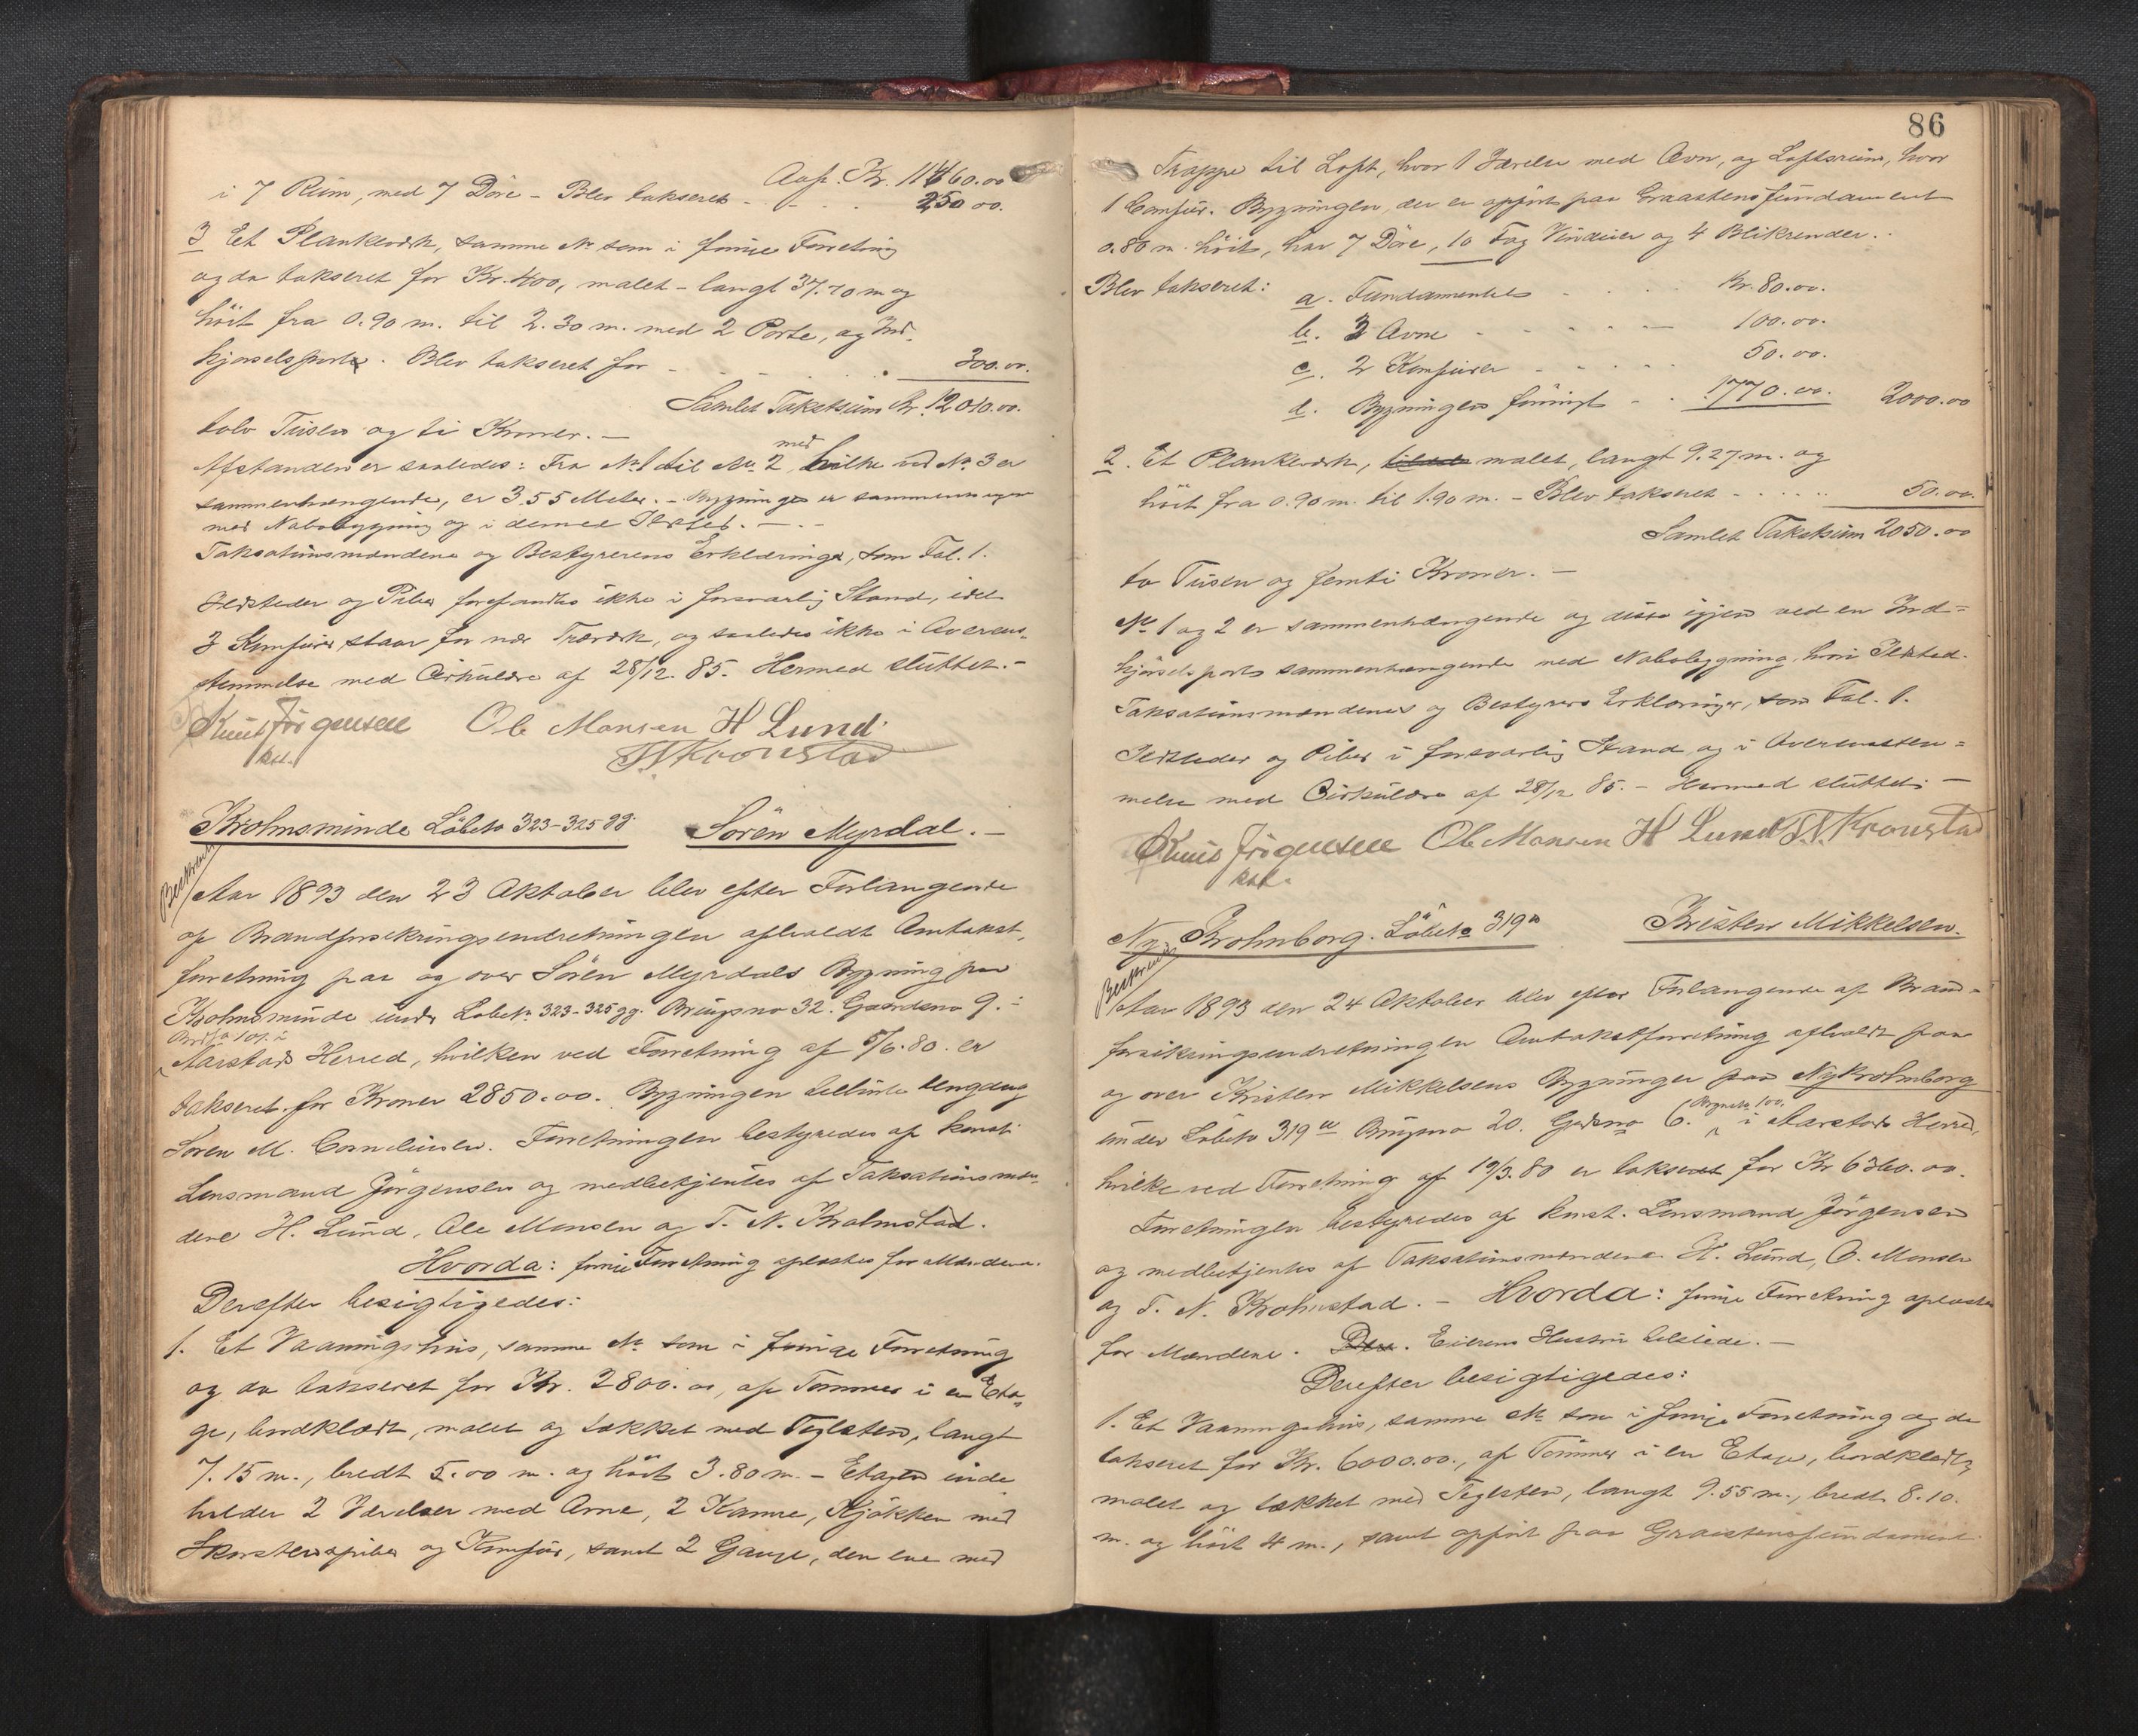 Ansf. Kr. 11460.00
i 7 Rum, med 7 Döre - Blev takseret - - - 250.00.
3 Et Plankeværk, samme No som i forrige Forretning
og da takseret for Kr. 400, malet - langt 37.70 m og
höit fra 0.90 m. til 2.30 m. med 2 Porte, og Ind-
kjørselsport. Blev takseret for - - - 300.00.
Samlet Takstsum Kr. 12010.00.
tolv Tusen og ti Kroner. —
Afstanden er saaledes: Fra No 1 til No 2, med hvilke No 3 er
sammenhængende, er 3.55 Meter. - Bygninger er
med Nabobygning og i denne Ildsted. —
Taksationsmændenes og Bestyrerens Erklæringer, som Fol. 1.
Ildsteder og Piber forefandtes ikke i forsvarlig Stand, idet
3 Komfurer staar for nær Træværk, og saaledes ikke i Overens-
stemmelse med Cirkulære af 28/12. 85. Hermed sluttet. -
Knud Jörgensen Ole Monsen H Lund
kst. T. N. Kronstad
Krohnsminde Löbeno 323-325 gg. Sören Myrdal. —
Beskrevet
Aar 1893 den 23 Oktober blev efter Forlangende
af Brandforsikringsindretningen afholdt Omtakst-
forretning paa og over Sören Myrdals Bygning paa
Krohnsminde under Löbeno 323-325 gg. Brugsno 32. Gaardsno 9. i
Aarstads Herred, hvilken ved Forretning af 5/6. 80. er
takseret for Kroner 2850.00. Bygningen tilhörte dengang
Sören M. Corneliusen. Forretningen bestyredes af konst.
Lensmand Jörgensen og medbetjentes af Taksationsmæn-
dene H. Lund, Ole Monsen og T. N. Krohnstad.
Hvorda: forrige Forretning oplæstes for Mændene.
Derefter besigtigedes:
1. Et Vaaningshus, samme No som i forrige Forretning
og da takseret for Kr. 2800.00, af Tömmer i en Eta-
ge, bordklædt, malet og tækket med Teglsten, langt
7.15 m., bredt 5.00 m. og höit 3.80 m. - Etagen inde-
holder 2 Værelser med Ovne, 2 Kamre, Kjökken med
Skorstenspibe og Komfur, samt 2 Gange, den ene med
86
Trappe til Loft, hvor 1 Værelse med Ovn, og Loftsrum, hvor
1 Comfur. Bygningen, der er opfört paa Graastensfundament
0.80 m. höit, har 7 Döre, 10 Fag Vinduer og 4 Blikrender.
Blev takseret: a. Fundamentet - - Kr. 80.00.
b. 3 Ovne - - - 100.00.
c. 2 Komfurer - - - 50.00.
d. Bygningen forövrigt - - 1770.00. 2000.00
2. Et Plankeværk, malet, langt 9.27 m. og
höit fra 0.90 m. til 1.90 m. - Blev takseret - - - 50.00.
Samlet Takstsum 2050.00
to Tusen og femti Kroner. —
No 1 og 2 er sammenhængende og disse igjen ved en Ind-
kjörselsport sammenhængende med Nabobygning, hvori Ildsted.
Taksationsmændenes og Bestyrers Erklæringer, som Fol. 1.
Ildsteder og Piber i forsvarlig Stand og i Overensstem-
melse med Cirkulære af 28/12 85. - Hermed sluttet. —
Knud Jörgensen Ole Monsen H Lund T. N. Kronstad
kst.
Ny Krohnborg. Löbeno 319 Kristen Mikkelsen.
Beskrevet
Aar 1893 den 24 Oktober blev efter Forlangende af Brand-
forsikringsindretningen Omtakstforretning afholdt paa
og over Kristen Mikkelsens Bygninger paa NyKrohnborg
under Löbeno 319 Brugsno 20. Gardsno 6. i Aarstads Herred,
hvilke ved Forretning af 19/3. 80 er takseret for Kr 6360.00.
Forretningen bestyredes af konst. Lensmand Jörgensen
og medbetjentes af Taksationsmændene H. Lund, O. Monsen
og T. N. Krohnstad. - Hvorda: forrige Forretning oplæstes
for Mændene. Eierens Hustru tilstede. —
Derefter besigtigedes:
1. Et Vaaningshus, samme No som i forrige Forretning og da
takseret for Kr. 6000.00., af Tömmer i en Etage, bordklædt,
malet og tækket med Teglsten, langt 9.55 m., bredt 8.10.
m. og höit 4 m., samt opfört paa Graastensfundament